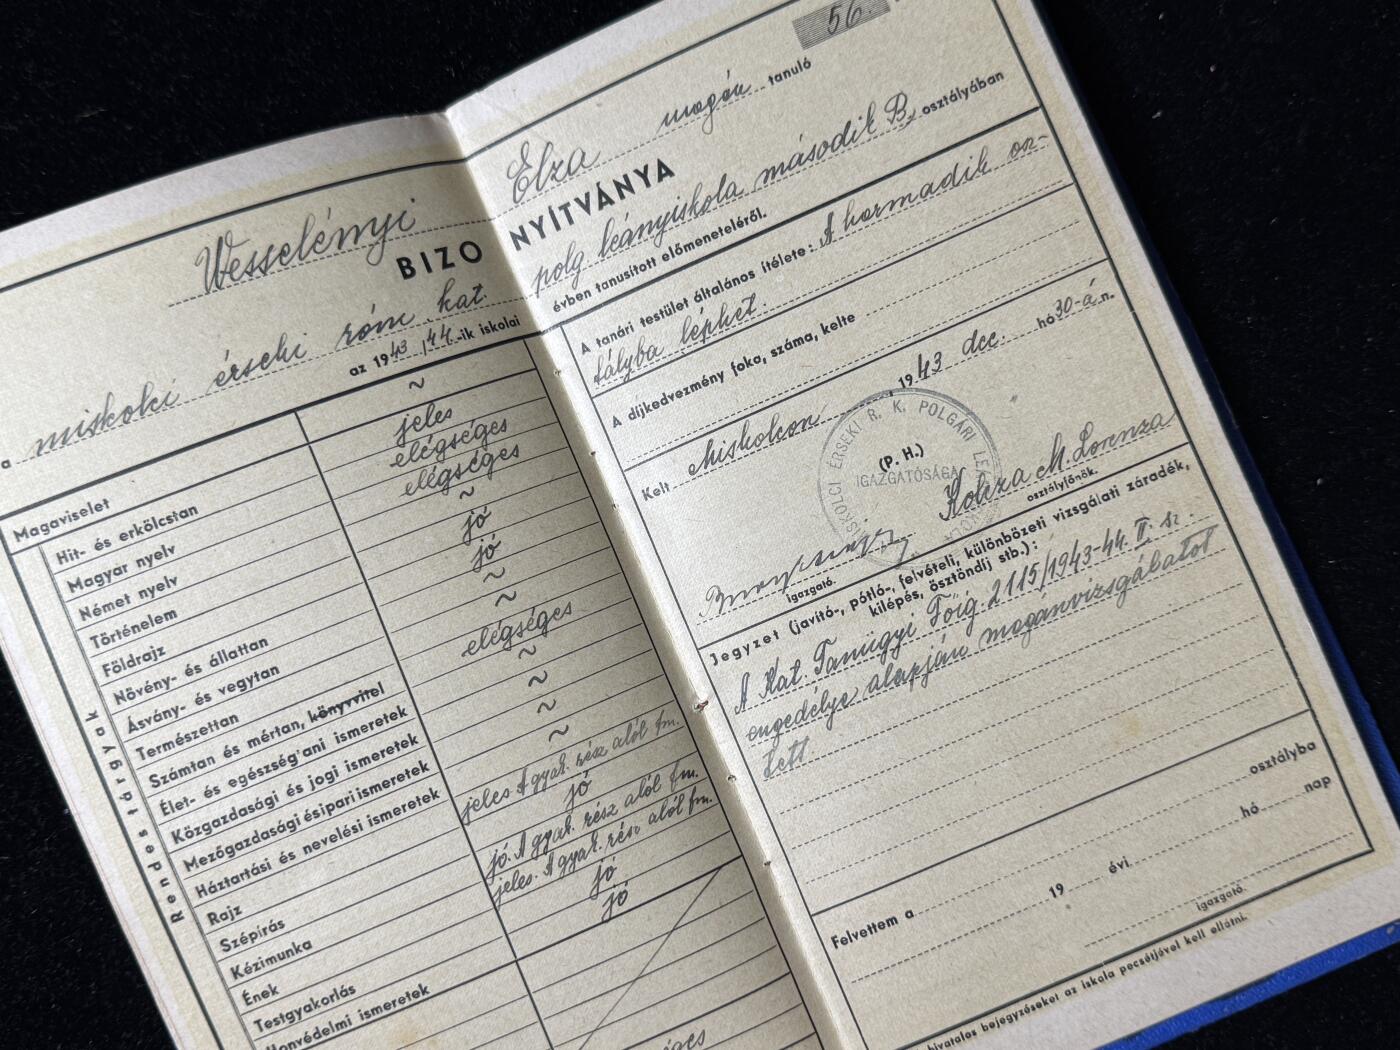 56.
Wesselényi Elza magán tanuló
BIZONYÍTVÁNYA
a miskolci érseki róm. kat. polg. leányiskola második B. osztályában
az 1943/44.-ik iskolai évben tanusított előmeneteléről.
Magaviselet ~
Rendes tárgyak
Hit- és erkölcstan jeles
Magyar nyelv elégséges
Német nyelv elégséges
Történelem ~
Földrajz jó
Növény- és állattan jó
Ásvány- és vegytan ~
Természettan ~
Számtan és mértan, könyvvitel elégséges
Élet- és egészségtani ismeretek ~
Közgazdasági és jogi ismeretek ~
Mezőgazdasági és ipari ismeretek ~
Háztartási és nevelési ismeretek ~
jeles A gyak. rész alól fm.
Rajz jó
Szépírás jó. A gyak. rész alól fm.
Kézimunka jeles. A gyak. rész alól fm.
Ének jó
Testgyakorlás jó
Honvédelmi ismeretek
A tanári testület általános ítélete: A harmadik osz-
tályba léphet.
A díjkedvezmény foka, száma, kelte
Kelt Miskolcon, 1943 dec. hó 30-á.n.
MISKOLCI ÉRSEKI R. K. POLGÁRI LEÁNYISKOLA
IGAZGATÓSÁGA
(P. H.)
M. Lorenza
osztályfőnök.
igazgató.
Jegyzet (javító-, pótló-, felvételi, különbözeti vizsgálati záradék,
kilépés, ösztöndíj stb.):
A Kat. Tanügyi Főig. 2115/1943-44. II. sz.
engedélye alapján magánvizsgálatot
tett
Felvettem a osztályba
19 évi hó nap
igazgató.
hivatalos bejegyzéseket az iskola pecsétjével kell ellátni.